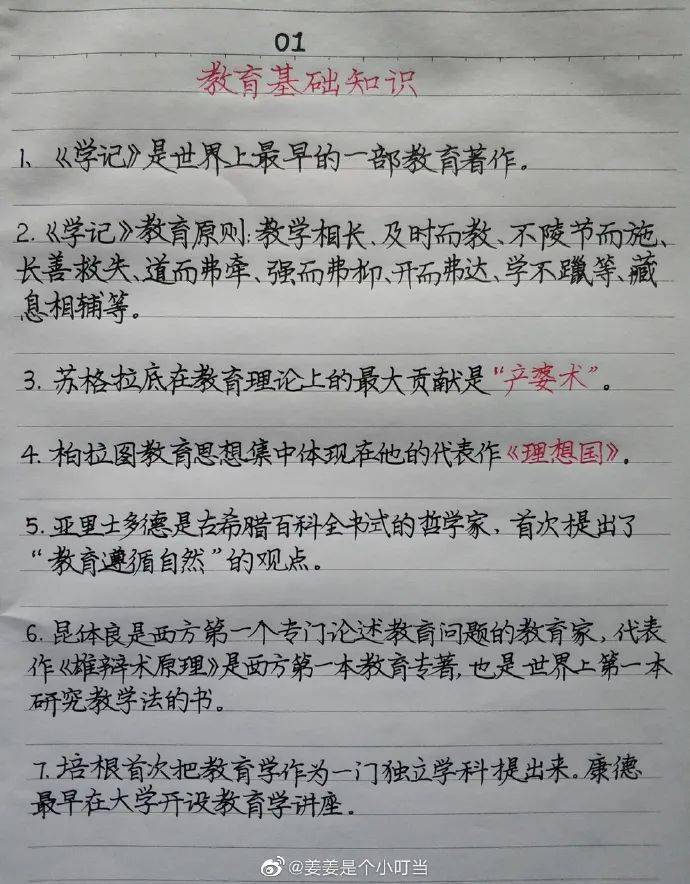 01
教育基础知识
1、《学记》是世界上最早的一部教育著作。
2.《学记》教育原则:教学相长、及时而教、不陵节而施、
长善救失、道而弗牵、强而弗抑、开而弗达、学不躐等、藏
息相辅等。
3. 苏格拉底在教育理论上的最大贡献是“产婆术”。
4. 柏拉图教育思想集中体现在他的代表作《理想国》。
5. 亚里士多德是古希腊百科全书式的哲学家，首次提出了
“教育遵循自然”的观点。
6. 昆体良是西方第一个专门论述教育问题的教育家，代表
作《雄辩术原理》是西方第一本教育专著,也是世界上第一本
研究教学法的书。
7. 培根首次把教育学作为一门独立学科提出来。康德
最早在大学开设教育学讲座。
@姜姜是个小叮当